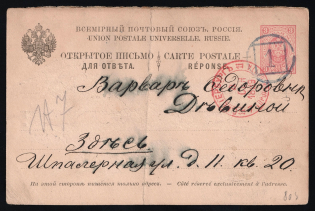 ВСЕМІРНЫЙ ПОЧТОВЫЙ СОЮЗЪ. РОССІЯ.
UNION POSTALE UNIVERSELLE. RUSSIE.
ОТКРЫТОЕ ПИСЬМО CARTE POSTALE
ДЛЯ ОТВѢТА. RÉPONSE
Варварѣ Ѳедоровнѣ
Здѣсь.
Шпалерная ул. д. 11 кв. 20.
На этой сторонѣ пишется только адресъ. — Côté réservé exclusivement à l'adresse.